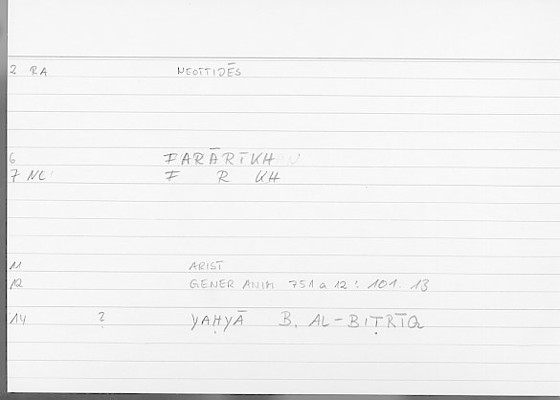 2 RA NEOTTIDĒS
6 FARĀRĪKH
7 NC F R KH
11 ARIST
12 GENER ANIM 751a12 : 101.13
14 ? YAḤYĀ B. AL-BIṬRĪQ